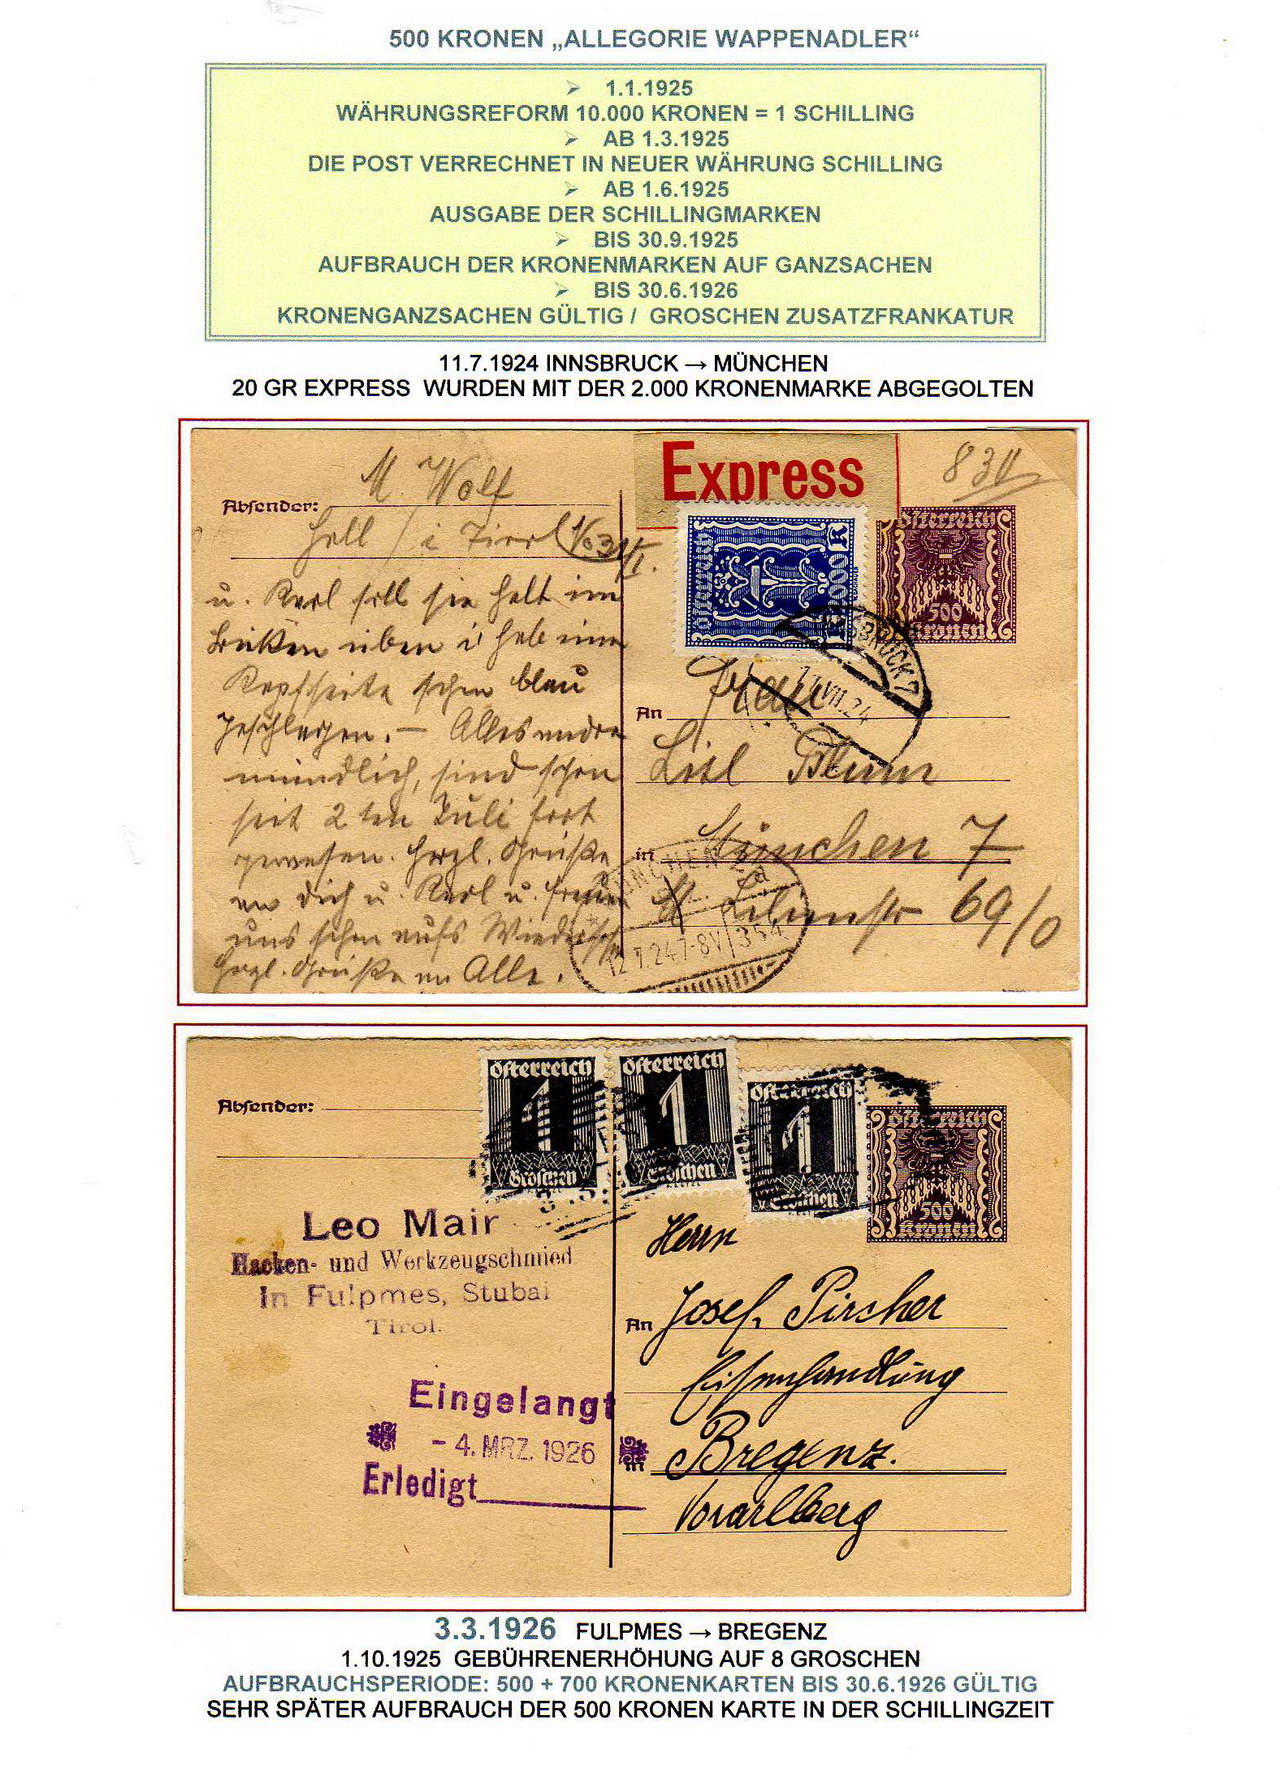 500 KRONEN „ALLEGORIE WAPPENADLER“
➢ 1.1.1925
WÄHRUNGSREFORM 10.000 KRONEN = 1 SCHILLING
➢ AB 1.3.1925
DIE POST VERRECHNET IN NEUER WÄHRUNG SCHILLING
➢ AB 1.6.1925
AUSGABE DER SCHILLINGMARKEN
➢ BIS 30.9.1925
AUFBRAUCH DER KRONENMARKEN AUF GANZSACHEN
➢ BIS 30.6.1926
KRONENGANZSACHEN GÜLTIG / GROSCHEN ZUSATZFRANKATUR
11.7.1924 INNSBRUCK → MÜNCHEN
20 GR EXPRESS WURDEN MIT DER 2.000 KRONENMARKE ABGEGOLTEN
M. Wolf
Absender:
Hall / i Tirol
u. Karl soll sie halt im
Kopfseite schon blau
geschlagen. – Alles andre
mündlich, sind schon
seit 2ten Juli fort
gewesen. Herzl. Grüße
an Dich u. Karl u. freuen
uns schon aufs Wiederseh
Herzl. Grüße an Alle.
Express
830
Österreich
2000 K
Österreich
500
Kronen
INNSBRUCK 7
11.VII.24
An Frau
Lisl Blum
in München 7
69/0
MÜNCHEN
12.7.24 7-8V 354
Absender:
Österreich
1
Groschen
Österreich
1
Groschen
Österreich
1
Groschen
Österreich
500
Kronen
Leo Mair
Hacken- und Werkzeugschmied
in Fulpmes, Stubai
Tirol.
Eingelangt
- 4. MRZ. 1926
Erledigt
Herrn
An Josef Pircher
Eisenhandlung
in Bregenz.
Vorarlberg
3.3.1926 FULPMES → BREGENZ
1.10.1925 GEBÜHRENERHÖHUNG AUF 8 GROSCHEN
AUFBRAUCHSPERIODE: 500 + 700 KRONENKARTEN BIS 30.6.1926 GÜLTIG
SEHR SPÄTER AUFBRAUCH DER 500 KRONEN KARTE IN DER SCHILLINGZEIT